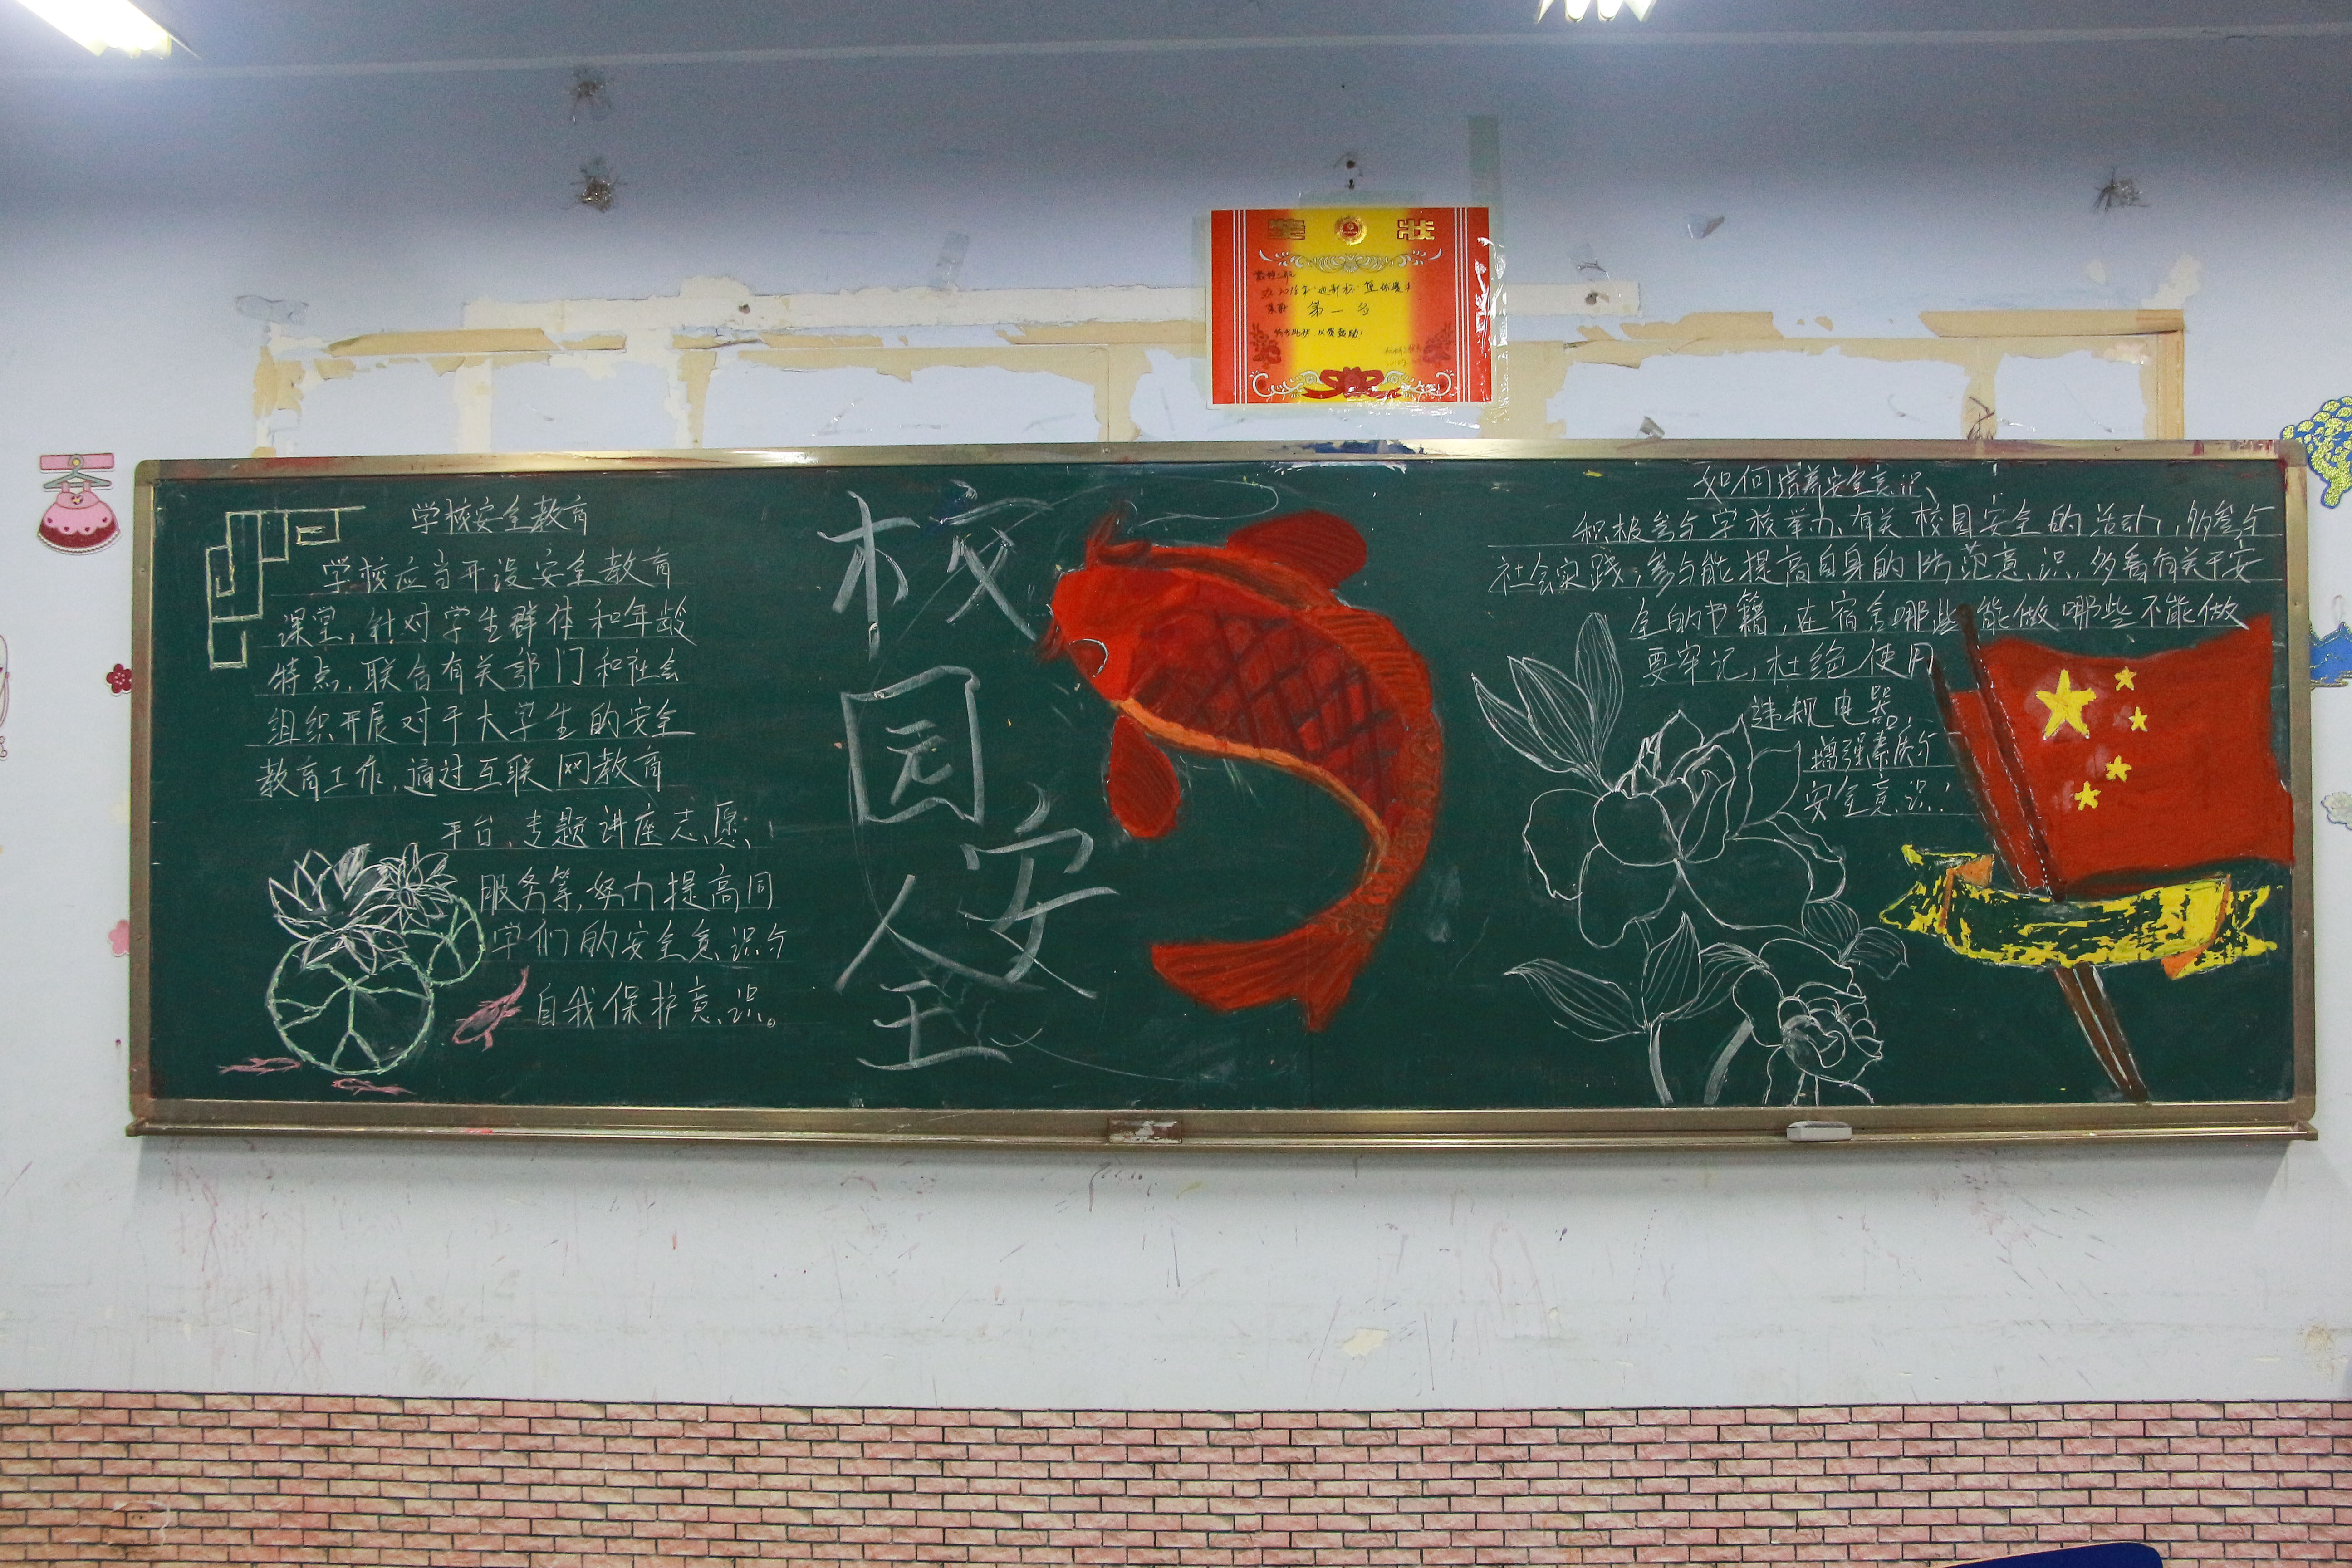 奖 状
第一名
学校安全教育
学校应当开设安全教育
课堂,针对学生群体和年龄
特点,联合有关部门和社会
组织开展对于大学生的安全
教育工作,通过互联网教育
平台、专题讲座志愿
服务等,努力提高同
学们的安全意识与
自我保护意识。
校
园
安
全
如何培养安全意识
积极参与学校举办有关校园安全的活动,多参与
社会实践,参与能提高自身的防范意识,多看有关于安
全的书籍,在宿舍哪些能做哪些不能做
要牢记,杜绝使用
违规电器,
增强素质与
安全意识!